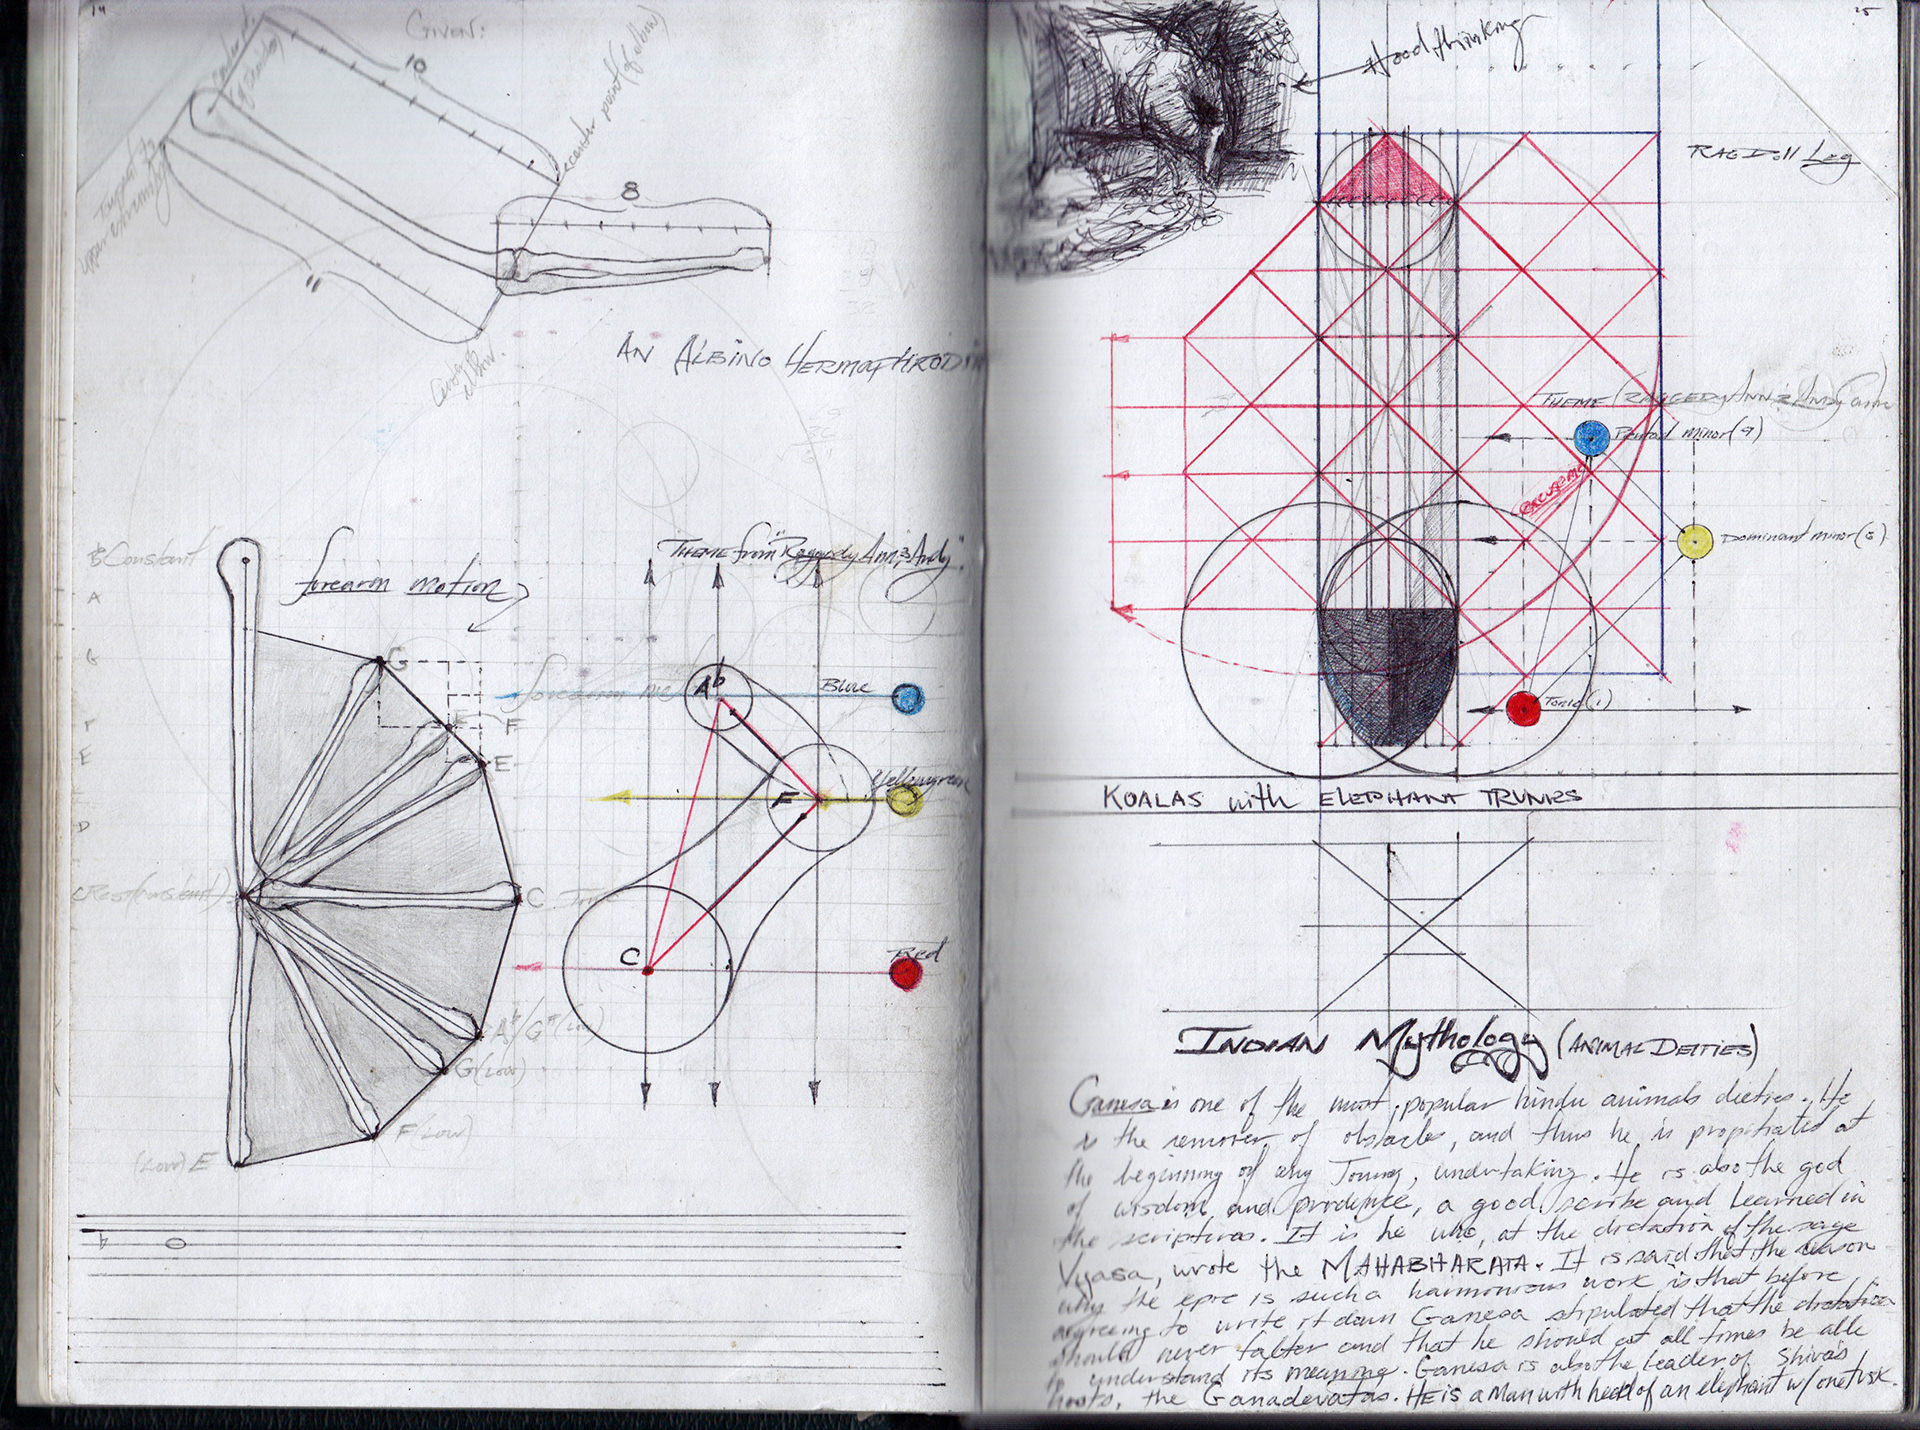 14
GIVEN:
10
center of
(shoulder)
center point (of elbow)
Tangent to
upper extremity
8
11
Center
elbow.
AN ALBINO HERMAPHRODI
Constant
A
G
F
E
D
forearm motion
THEME from "Raggedy Ann & Andy".
G
F
F
E
C
A♭/G♯ (Low)
G (Low)
F (Low)
(Low) E
forearm
A♭
Blue
F
Yellowgreen
C
Red
♭
25
Hood thinking
RAG Doll Leg
THEME (RAGGEDY ANN & ANDY
minor (4)
excuse me
Dominant minor (5)
Tonic (1)
KOALAS with ELEPHANT TRUNKS
INDIAN Mythology (ANIMAL DEITIES)
Ganesa is one of the most popular hindu animals dieties. He
is the remover of obstacles, and thus he is propitiated at
the beginning of any undertaking. He is also the god
of wisdom and prudence, a good scribe and learned in
the scriptures. It is he who, at the dictation of the sage
Vyasa, wrote the MAHABHARATA. It is said that the reason
why the epic is such a harmonious work is that before
agreeing to write it down Ganesa stipulated that the dictation
should never falter and that he should at all times be able
to understand its meaning. Ganesa is also the leader of Shiva's
hosts, the Ganadevatas. HE is a Man with head of an elephant w/ one tusk.